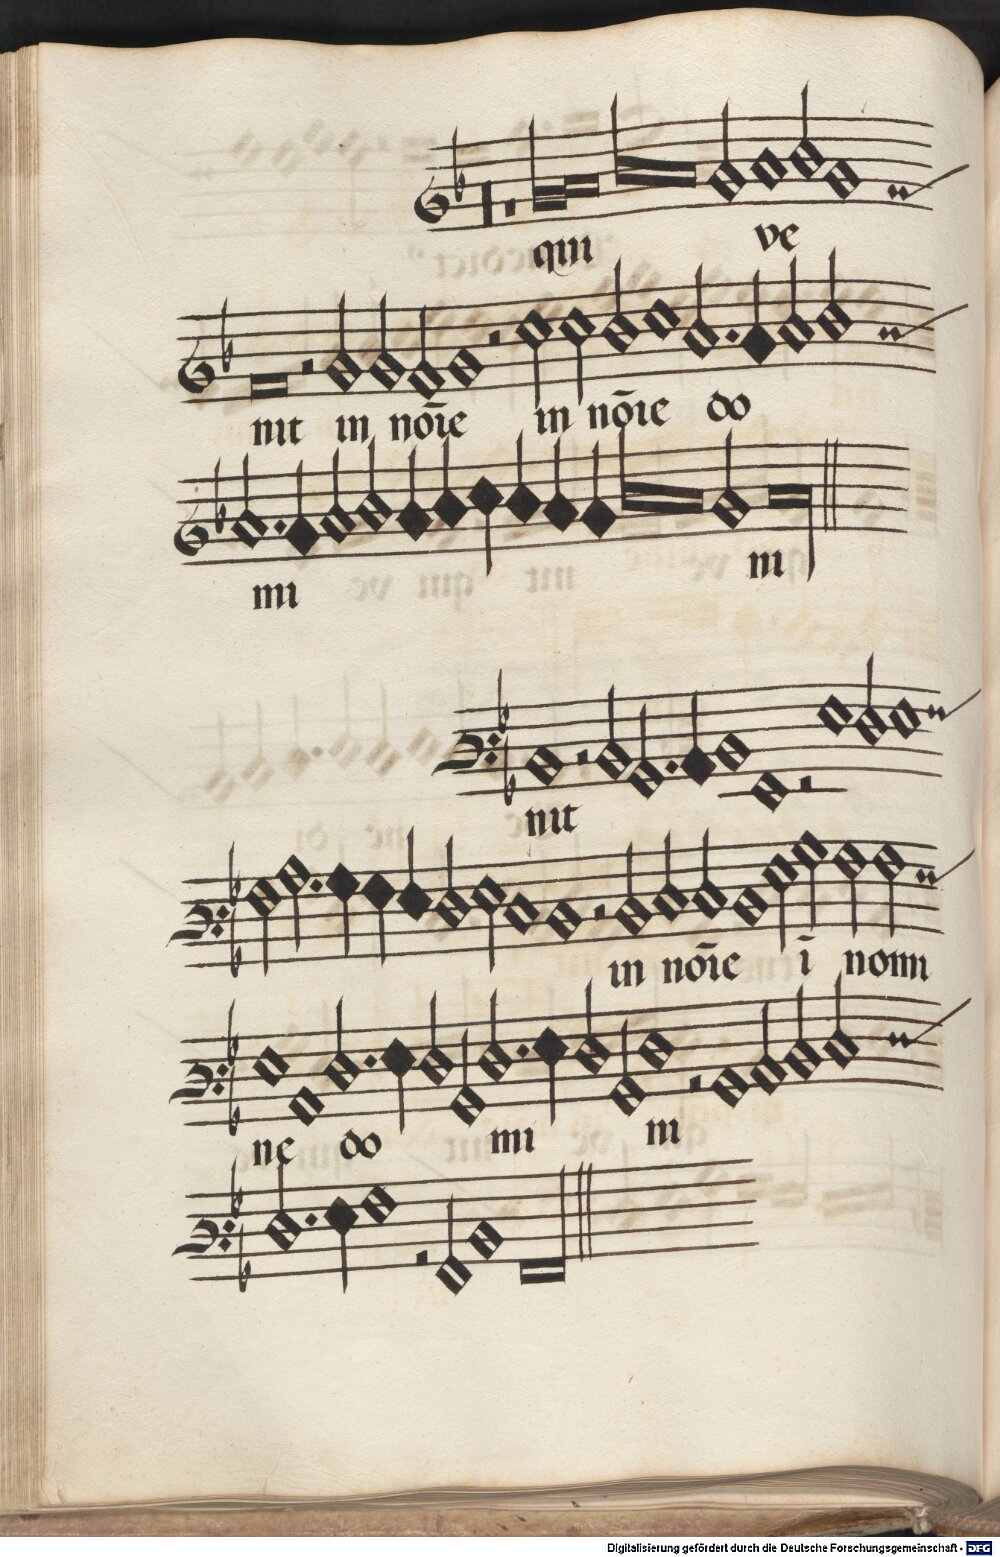 qui ve
nit in nōie in nōie do
mi ni
nit
in nōie ī nomi
ne do mi ni
Digitalisierung gefördert durch die Deutsche Forschungsgemeinschaft - DFG